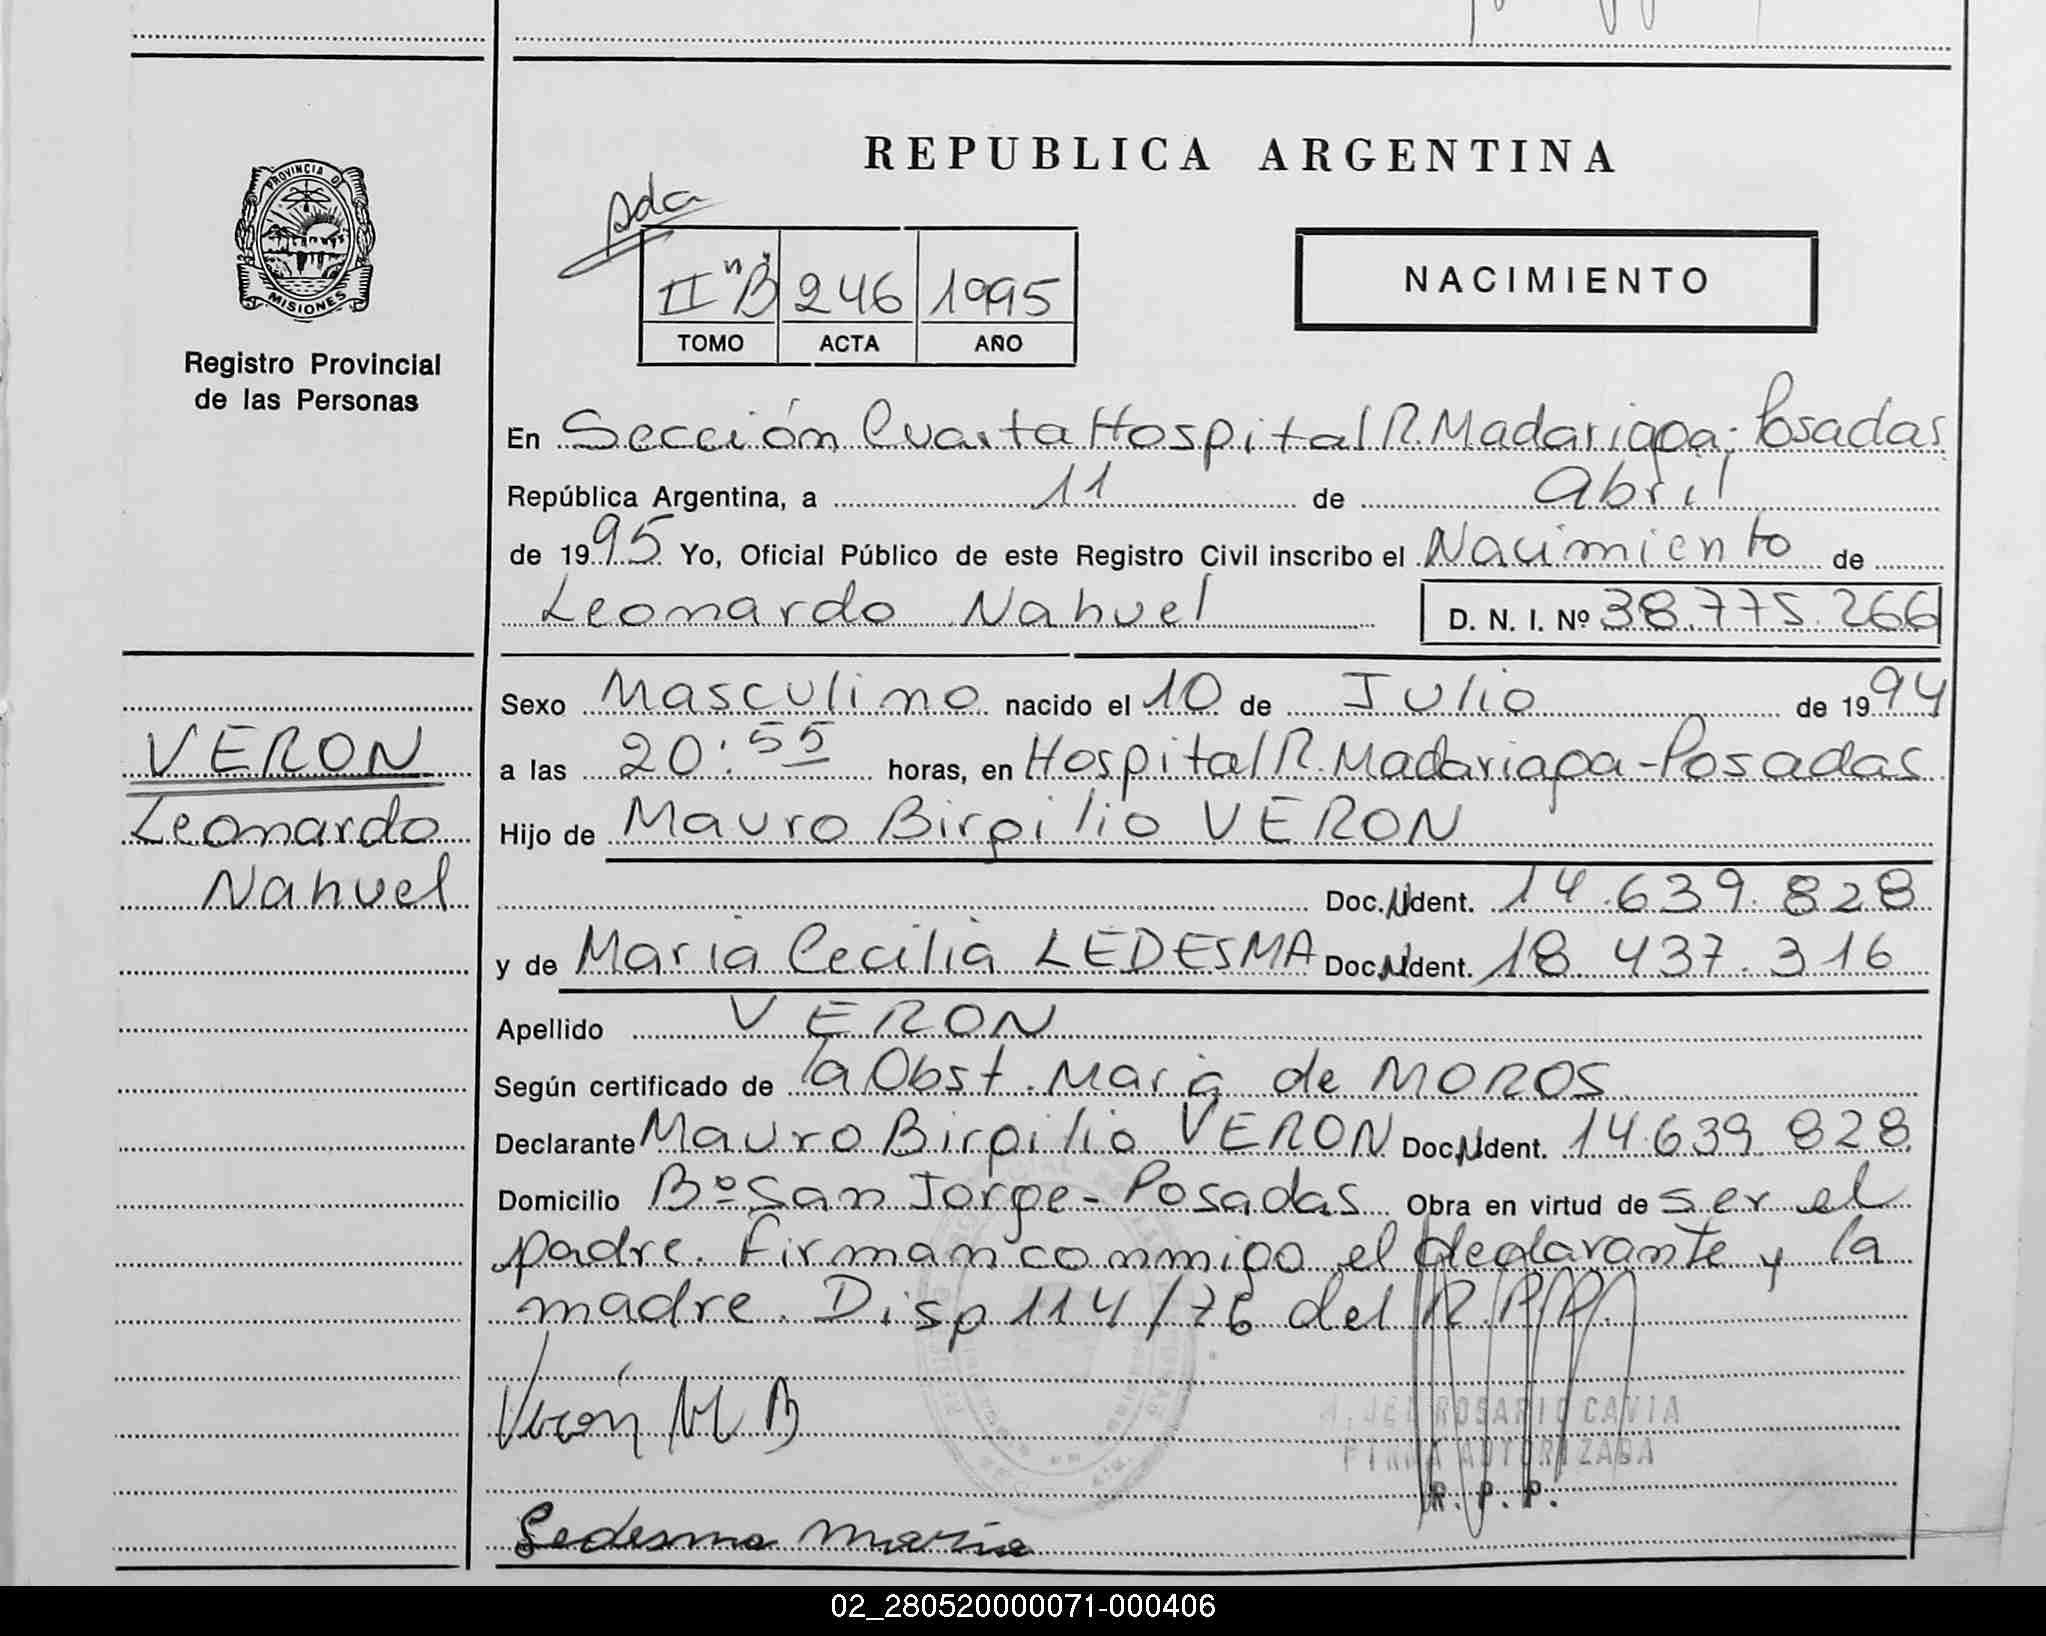 REPUBLICA ARGENTINA
PROVINCIA DE
MISIONES
Registro Provincial
de las Personas
Adca
II "B" 246 1995
TOMO ACTA AÑO
NACIMIENTO
En Sección Cuarta Hospital R. Madariaga - Posadas
República Argentina, a 11 de Abril
de 1995 Yo, Oficial Público de este Registro Civil inscribo el Nacimiento de
Leonardo Nahuel D. N. I. Nº 38.775.266
Sexo Masculino nacido el 10 de Julio de 1994
VERON
a las 20:55 horas, en Hospital R. Madariaga - Posadas
Leonardo
Hijo de Mauro Birgilio VERON
Nahuel
Doc. N Ident. 14.639.828
y de Maria Cecilia LEDESMA Doc. N Ident. 18.437.316
Apellido VERON
Según certificado de la Obst. Maria de MOROS
Declarante Mauro Birgilio VERON Doc. N Ident. 14.639.828
Domicilio Bº San Jorge - Posadas Obra en virtud de ser el
padre. Firman conmigo el declarante y la
madre. Disp 114/76 del R.P.P.
Verón M B
ROSARIO CAVIA
FIRMA AUTORIZADA
R. P. P.
Ledesma Maria
02_280520000071-000406